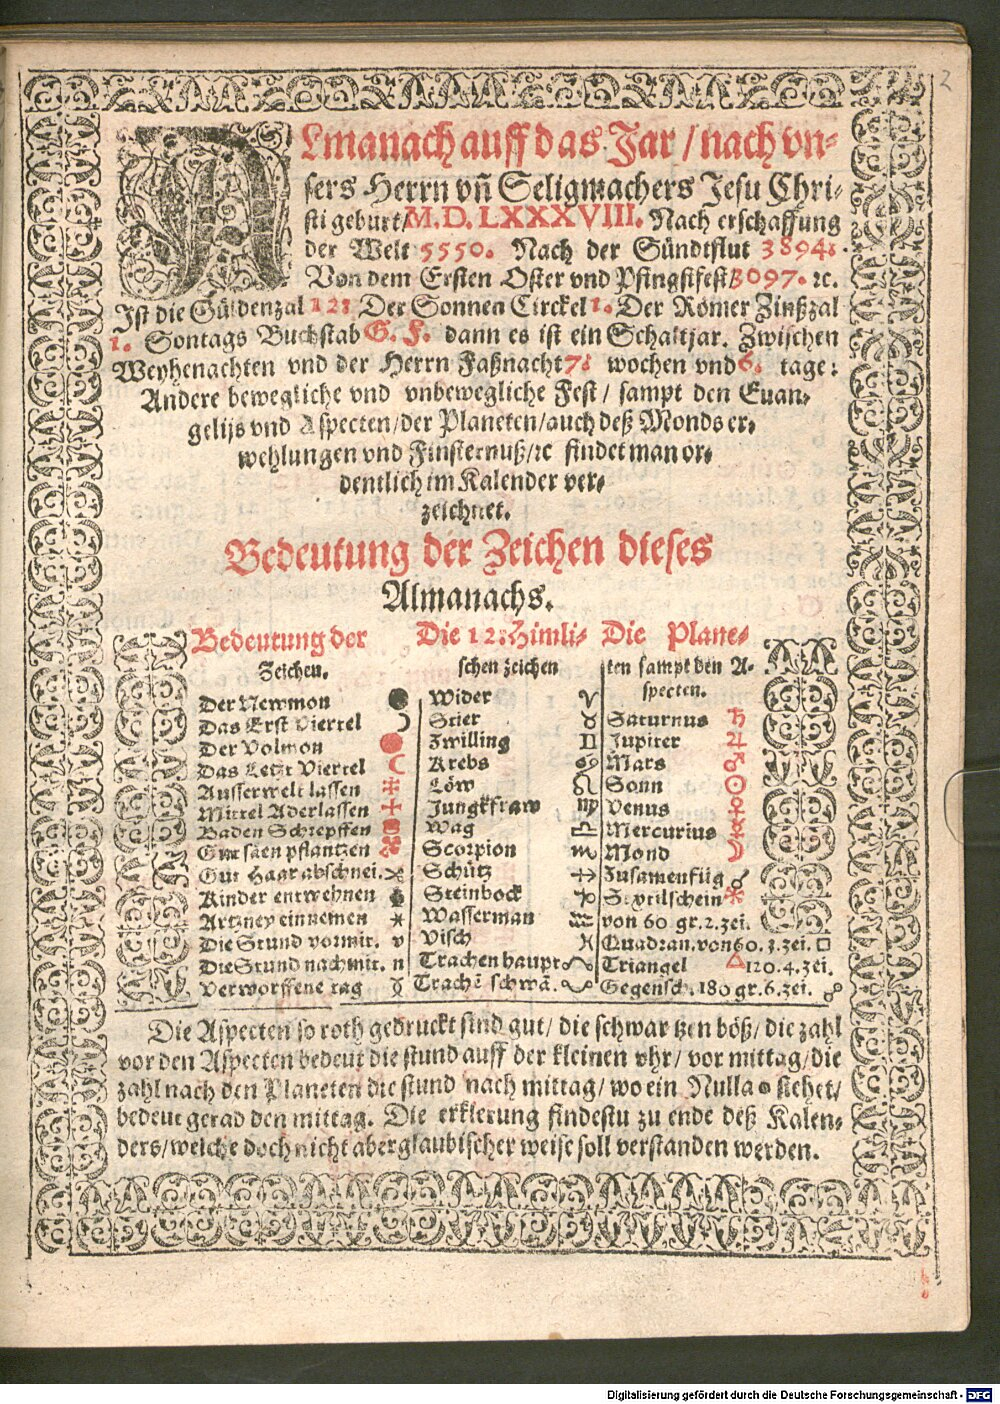 2
ALmanach auff das Jar / nach vn-
sers Herrn vñ Seligmachers Jesu Chri-
sti geburt / M. D. LXXXVIII. Nach erschaffung
der Welt 5550. Nach der Sündtflut 3894.
Von dem Ersten Oster vnd Pfingstfest 3097. ꝛc.
Ist die Güldenzal 12: Der Sonnen Circkel 1. Der Römer Zinßzal
1. Sontags Buchstab G. F. dann es ist ein Schaltjar. Zwischen
Weyhenachten vnd der Herrn Faßnacht 7: wochen vnd 6. tage:
Andere bewegliche vnd vnbewegliche Fest / sampt den Euan-
gelijs vnd Aspecten / der Planeten / auch deß Monds er-
wehlungen vnd Finsternuß / ꝛc findet man or-
dentlich im Kalender ver-
zeichnet.
Bedeutung der Zeichen dieses
Almanachs.
Bedeutung der
Zeichen.
Der Newmon ●
Das Erst Viertel ☽
Der Volmon ●
Das Letzt Viertel ☾
Ausserwelt lassen
Mittel Aderlassen
Baden Schrepffen
Gut säen pflantzen
Gut Haar abschnei.
Kinder entwehnen
Artzney einnemen
Die Stund vormit. v
Die Stund nachmit. n
Verworffene tag
Die 12: Himli-
schen zeichen
Wider ♈
Stier ♉
Zwilling ♊
Krebs ♋
Löw ♌
Jungkfraw ♍
Wag ♎
Scorpion ♏
Schütz ♐
Steinbock ♑
Wasserman ♒
Visch ♓
Trachen haupt ☊
Trachē schwā. ☋
Die Plane-
ten sampt den A-
specten.
Saturnus ♄
Jupiter ♃
Mars ♂
Sonn ☉
Venus ♀
Mercurius ☿
Mond ☽
Zusamenfüg ☌
Sextilschein ⚹
von 60 gr. 2. zei.
Quadran. von 60. 3. zei. □
Triangel △ 120. 4. zei.
Gegensch. 180 gr. 6. zei. ☍
Die Aspecten so roth gedruckt sind gut / die schwartzen böß / die zahl
vor den Aspecten bedeut die stund auff der kleinen vhr / vor mittag / die
zahl nach den Planeten die stund nach mittag / wo ein Nulla o stehet /
bedeut gerad den mittag. Die erklerung findestu zu ende deß Kalen-
ders / welche doch nicht aberglaubischer weise soll verstanden werden.
Digitalisierung gefördert durch die Deutsche Forschungsgemeinschaft - DFG